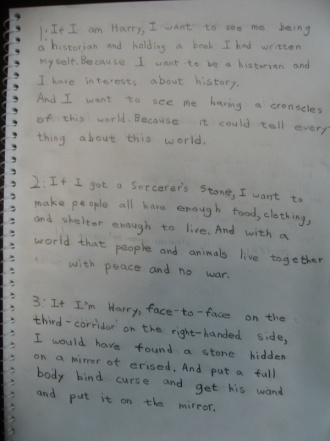 1: If I am Harry, I want to see me being
a historian and holding a book I had written
myself. Because I want to be a historian and
I have interests about history.
And I want to see me having a cronscles
of this world. Because it could tell every
thing about this world.
2: If I got a Sorcerer's Stone, I want to
make people all have enough food, clothing,
and shelter enough to live. And with a
world that people and animals live together
with peace and no war.
3: If I'm Harry, face-to-face on the
third-corridor on the right-handed side,
I would have found a stone hidden
on a mirror of erised. And put a full
body bind curse and get his wand
and put it on the mirror.